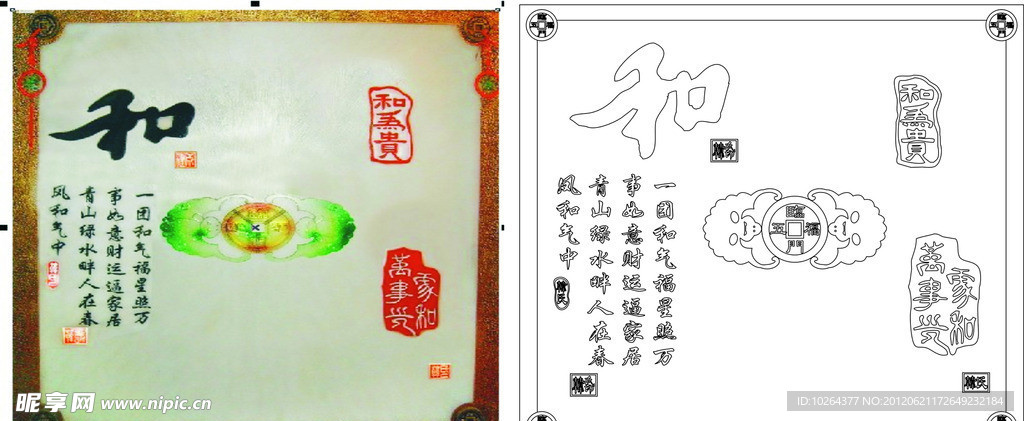 和
和為貴
一团和气福星照万
事如意财运逼家居
青山绿水畔人在春
风和气中
家和
萬事兴
昵享网 www.nipic.cn
和
和為貴
一团和气福星照万
事如意财运逼家居
青山绿水畔人在春
风和气中
五福臨門
五福臨門
五福臨門
家和
萬事兴
ID:10264377 NO:20120621172649232184